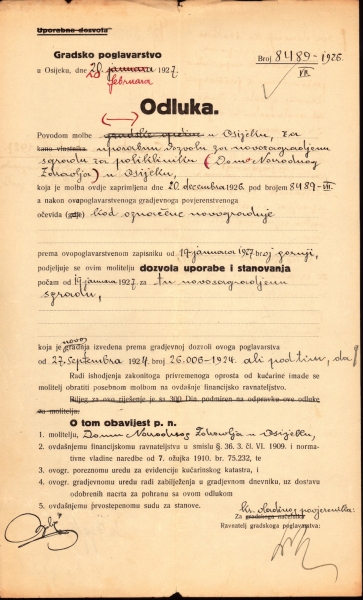 Uporabna dozvola
Gradsko poglavarstvo
u Osijeku, dne 20. januara 1927.
februara
Broj 8489-1926.
VII
Odluka.
Povodom molbe gradske općine u Osijeku, za
kano vlasnika uporabnu dozvolu za novosagradjenu
sgradu za polikliniku (Dom Narodnog
Zdravlja) u Osijeku,
koja je molba ovdje zaprimljena dne 20. decembra 1926. pod brojem 8489-VII.
a nakon ovopoglavarstvenog gradjevnog povjerenstvenog
očevida (gdje) kod označene novogradnje
prema ovopoglavarstvenom zapisniku od 19. januara 1927 broj gornji,
podjeljuje se ovim molitelju dozvola uporabe i stanovanja
počam od 19 januara 1927. za tu novosagradjenu
sgradu,
koja je gradnja izvedena prema gradjevnoj dozvoli ovoga poglavarstva
novo
od 27. septembra 1924. broj 26.006-1924. ali pod tim, da
Radi ishodjenja zakonitoga privremenoga oprosta od kućarine imade se
molitelj obratiti posebnom molbom na ovdašnje financijsko ravnateljstvo.
Biljeg za ovo riješenje je sa 300 Din podmiren na odpravku ove odluke
za molitelja.
O tom obavijest p. n.
1. molitelju, Domu Narodnog Zdravlja u Osijeku,
2. ovdašnjemu financijskomu ravnateljstvu u smislu §. 36, 3. čl. VI. 1909. i norma-
tivne vladine naredbe od 7. ožujka 1910. br. 75.232, te
3. ovogr. poreznomu uredu za evidenciju kućarinskog katastra, i
4. ovogr. gradjevnomu uredu radi zabilježenja u gradjevnom dnevniku, uz dostavu
odobrenih nacrta za pohranu sa ovom odlukom
5. ovdašnjemu prvostepenome sudu za stanove.
vladinog povjerenika:
Za gradskoga načelnika
Ravnatelj gradskoga poglavarstva: